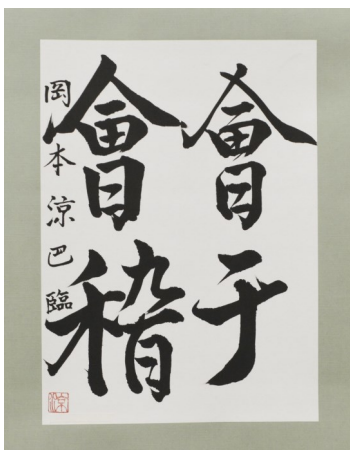 會于
會稽
岡本涼巴臨